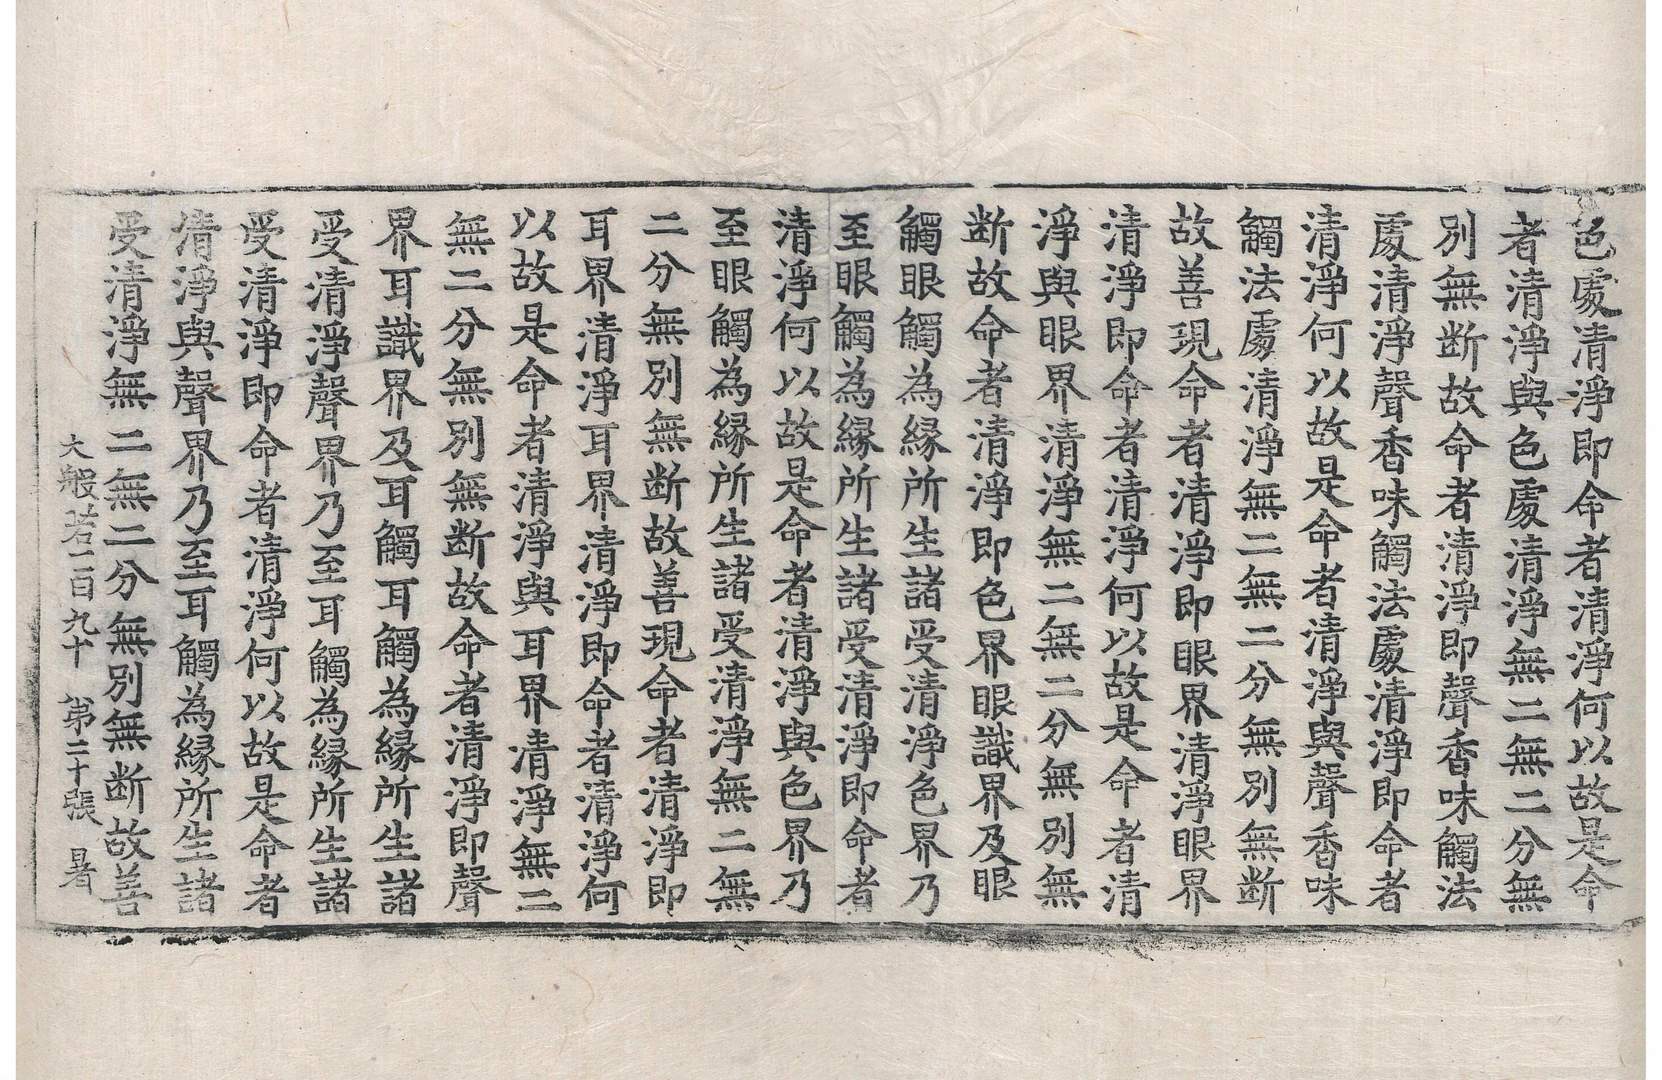 色處清淨即命者清淨何以故是命
者清淨與色處清淨無二無二分無
別無断故命者清淨即聲香味觸法
處清淨聲香味觸法處清淨即命者
清淨何以故是命者清淨與聲香味
觸法處清淨無二無二分無別無断
故善現命者清淨即眼界清淨眼界
清淨即命者清淨何以故是命者清
淨與眼界清淨無二無二分無別無
断故命者清淨即色界眼識界及眼
觸眼觸為緣所生諸受清淨色界乃
至眼觸為緣所生諸受清淨即命者
清淨何以故是命者清淨與色界乃
至眼觸為緣所生諸受清淨無二無
二分無別無断故善現命者清淨即
耳界清淨耳界清淨即命者清淨何
以故是命者清淨與耳界清淨無二
無二分無別無断故命者清淨即聲
界耳識界及耳觸耳觸為緣所生諸
受清淨聲界乃至耳觸為緣所生諸
受清淨即命者清淨何以故是命者
清淨與聲界乃至耳觸為緣所生諸
受清淨無二無二分無別無断故善
大般若一百九十 第二十張 暑